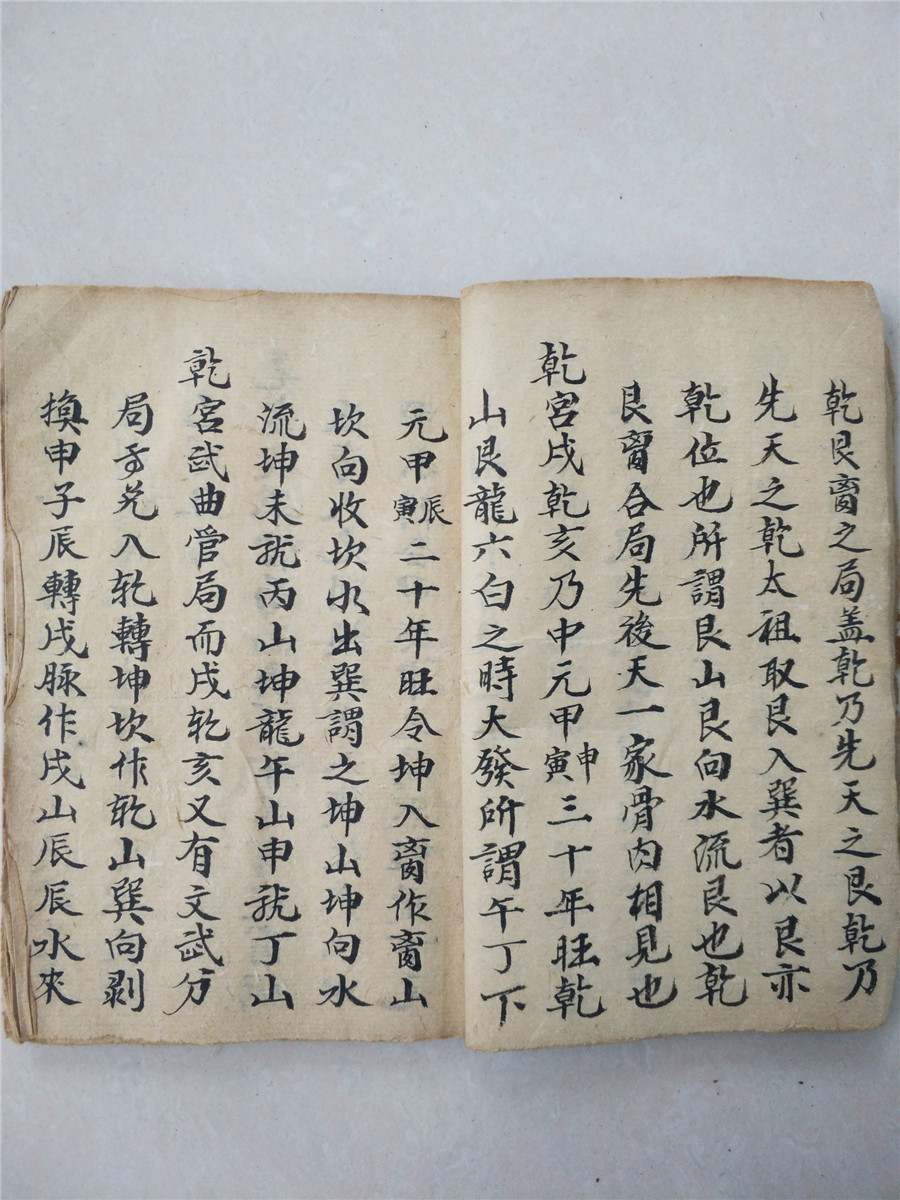 乾艮离之局盖乾乃先天之艮乾乃
先天之乾太祖取艮入巽者以艮亦
乾位也所謂艮山艮向水流艮也乾
艮离合局先後天一家骨肉相見也
乾宮戌乾亥乃中元甲申寅三十年旺乾
山艮龍六白之時大發所謂午丁下
元甲辰寅二十年旺令坤入离作离山
坎向收坎水出巽謂之坤山坤向水
流坤未就丙山坤龍午山申就丁山
乾宮武曲管局而戌乾亥又有文武分
局兌入乾轉坤坎作乾山巽向剥
換申子辰轉戌脉作戌山辰辰水來